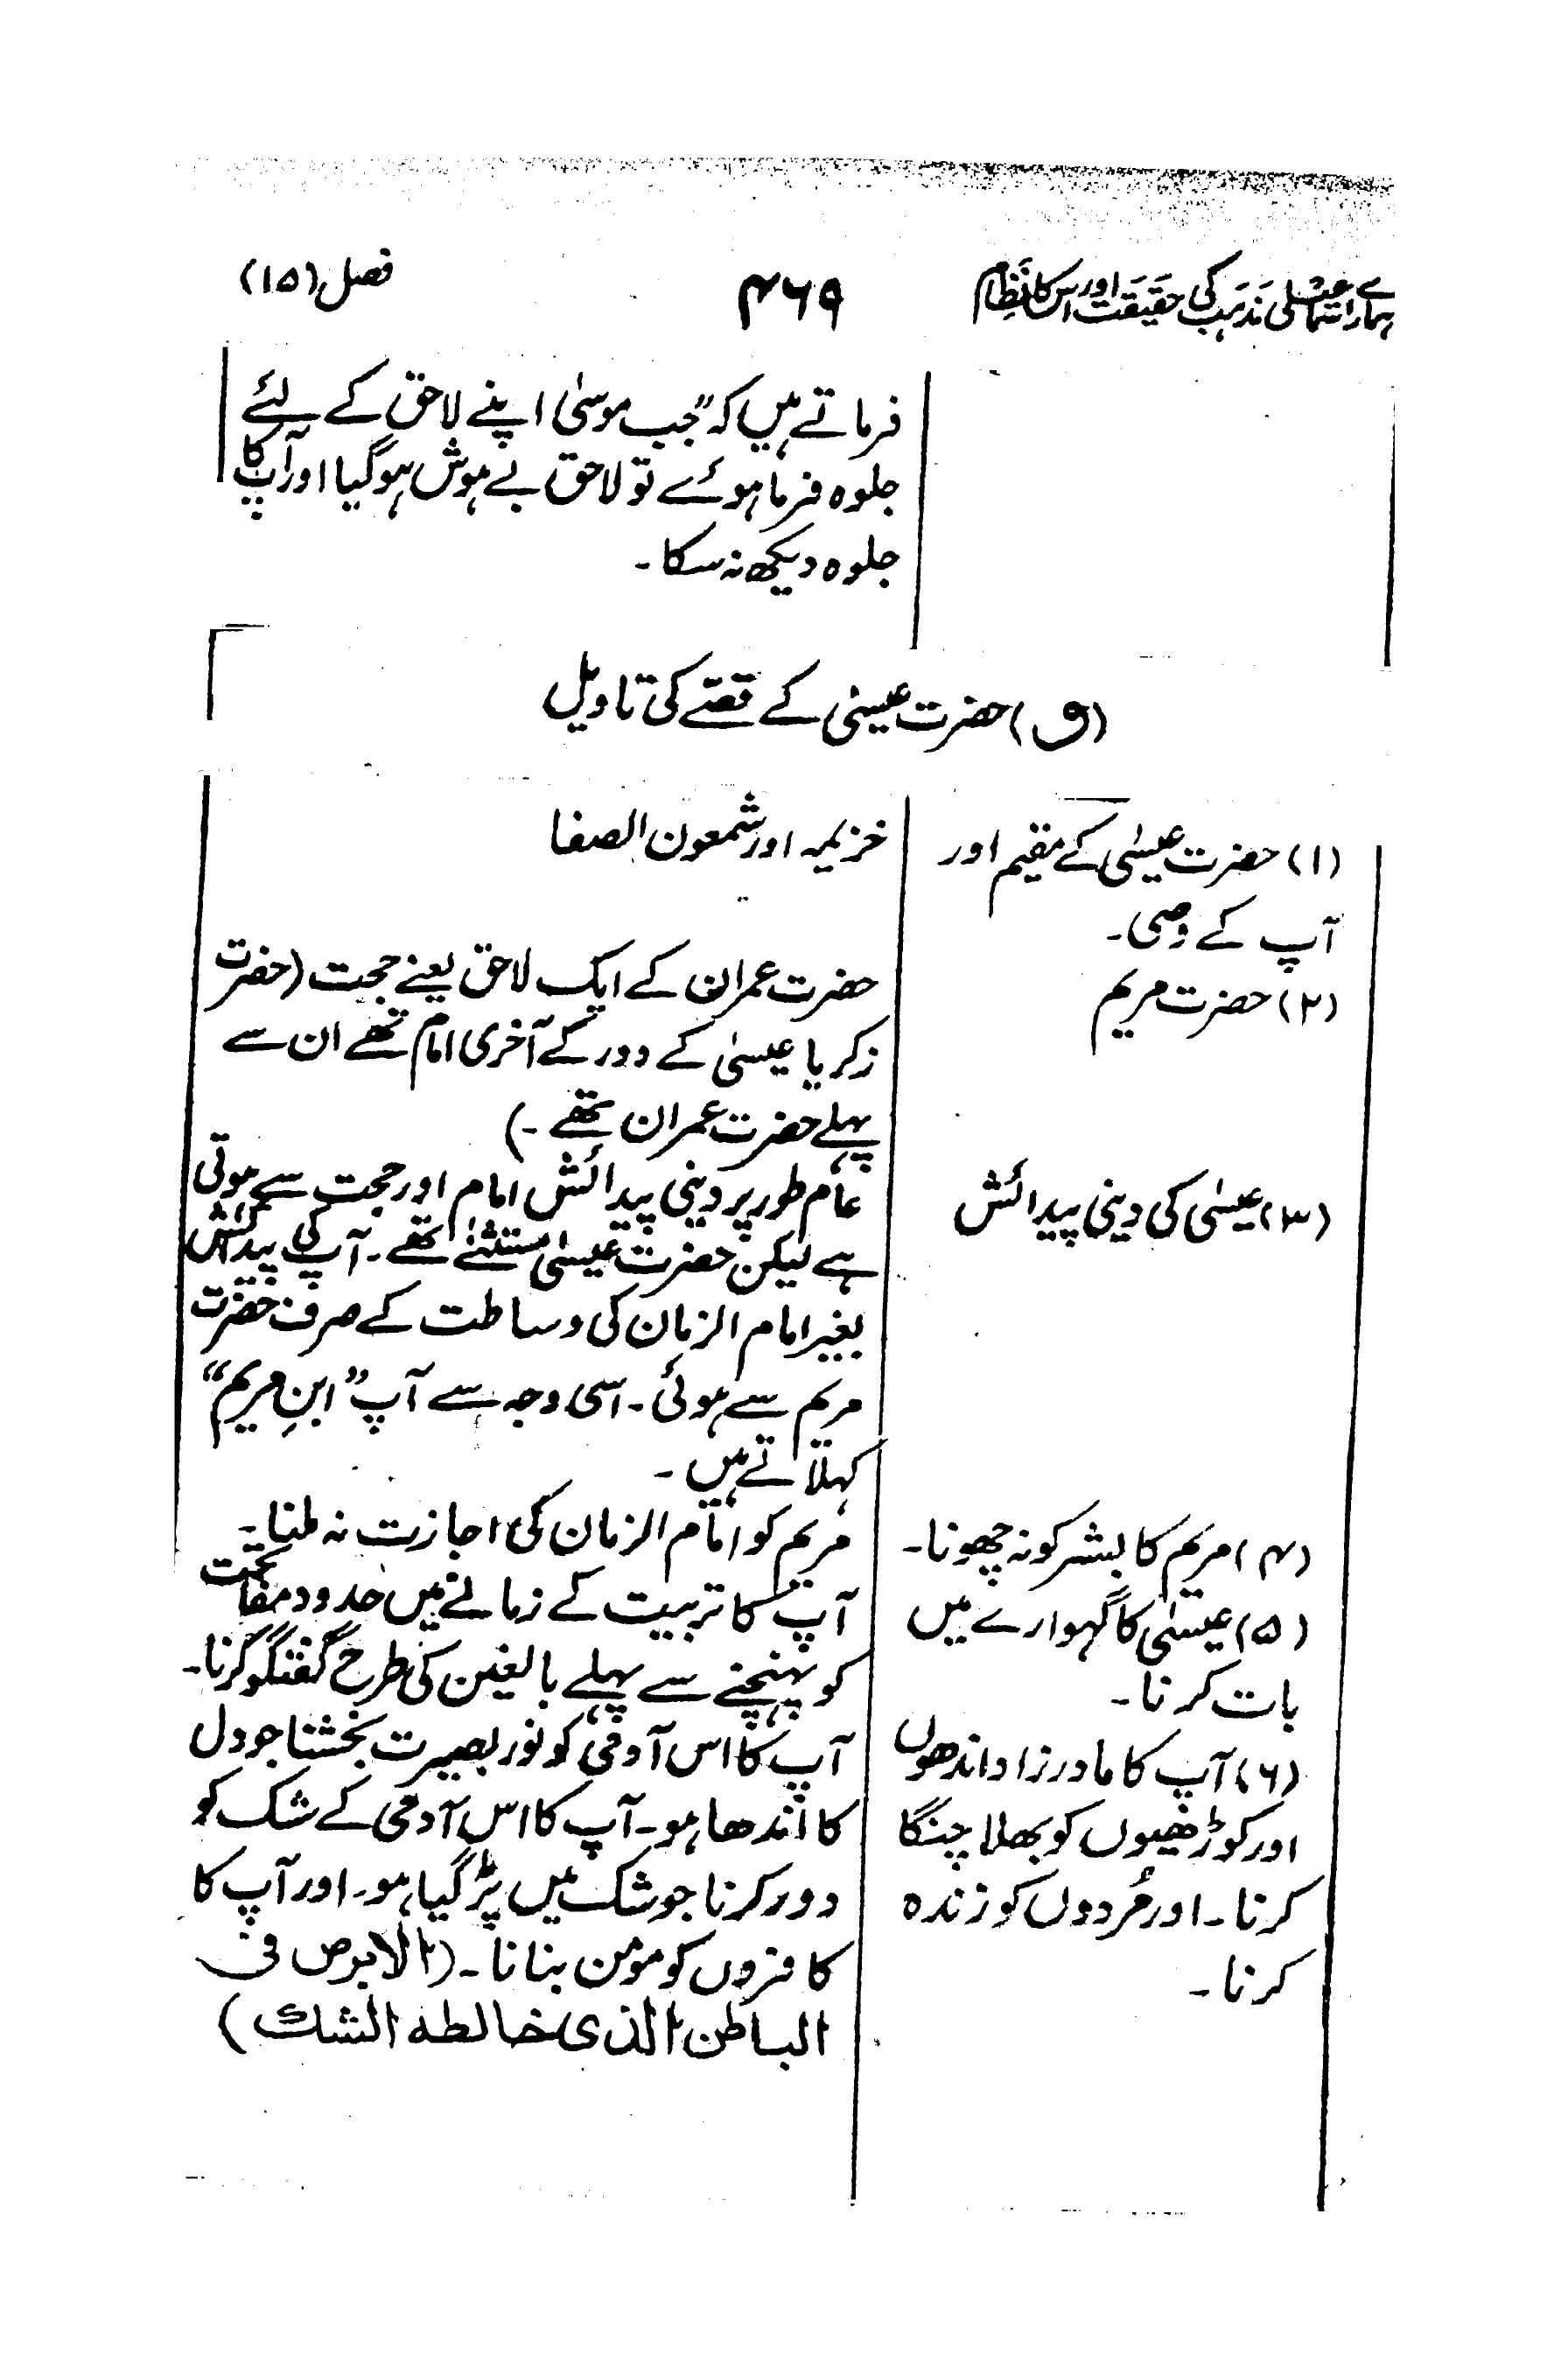 ہمارے اسماعیلی مذہب کی حقیقت اور اس کا نظام
۴۶۹
فصل (۱۵)
فرماتے ہیں کہ "جب موسیٰ اپنے لاحق کے لئے
جلوہ فرما ہوئے تو لاحق بے ہوش ہوگیا اور آپ کا
جلوہ دیکھ نہ سکا۔
(و) حضرت عیسیٰ کے قصّے کی تاویل
(۱) حضرت عیسیٰ کے مقیم اور
آپ کے وصی۔
خزیمہ اور شمعون الصفا
(۲) حضرت مریم
حضرت عمران کے ایک لاحق یعنے حجت (حضرت
زکریا عیسیٰ کے دور کے آخری امام تھے ان سے
پہلے حضرت عمران تھے۔)
(۳) عیسیٰ کی دینی پیدائش
عام طور پر دینی پیدائش امام اور حجت سے ہوتی
ہے لیکن حضرت عیسیٰ مستثنےٰ تھے۔ آپ کی پیدائش
بغیر امام الزمان کی وساطت کے صرف حضرت
مریم سے ہوئی۔ اسی وجہ سے آپ "ابنِ مریم"
کہلاتے ہیں۔
(۴) مریم کا بشر کو نہ چھونا۔
مریم کو امام الزمان کی اجازت نہ ملنا۔
(۵) عیسیٰ کا گہوارے میں
بات کرنا۔
آپ کا تربیت کے زمانے میں حدود مفاتحت
کو پہنچنے سے پہلے بالغین کی طرح گفتگو کرنا۔
(۶) آپ کا مادر زاد اندھوں
اور کوڑھیوں کو بھلا چنگا
کرنا۔ اور مُردوں کو زندہ
کرنا۔
آپ کا اس آدمی کو نور بصیرت بخشنا جو دل
کا اندھا ہو۔ آپ کا اس آدمی کے شک کو
دور کرنا جو شک میں پڑ گیا ہو۔ اور آپ کا
کافروں کو مومن بنانا۔ (الابرص فی
الباطن الذی خالطه الشك)